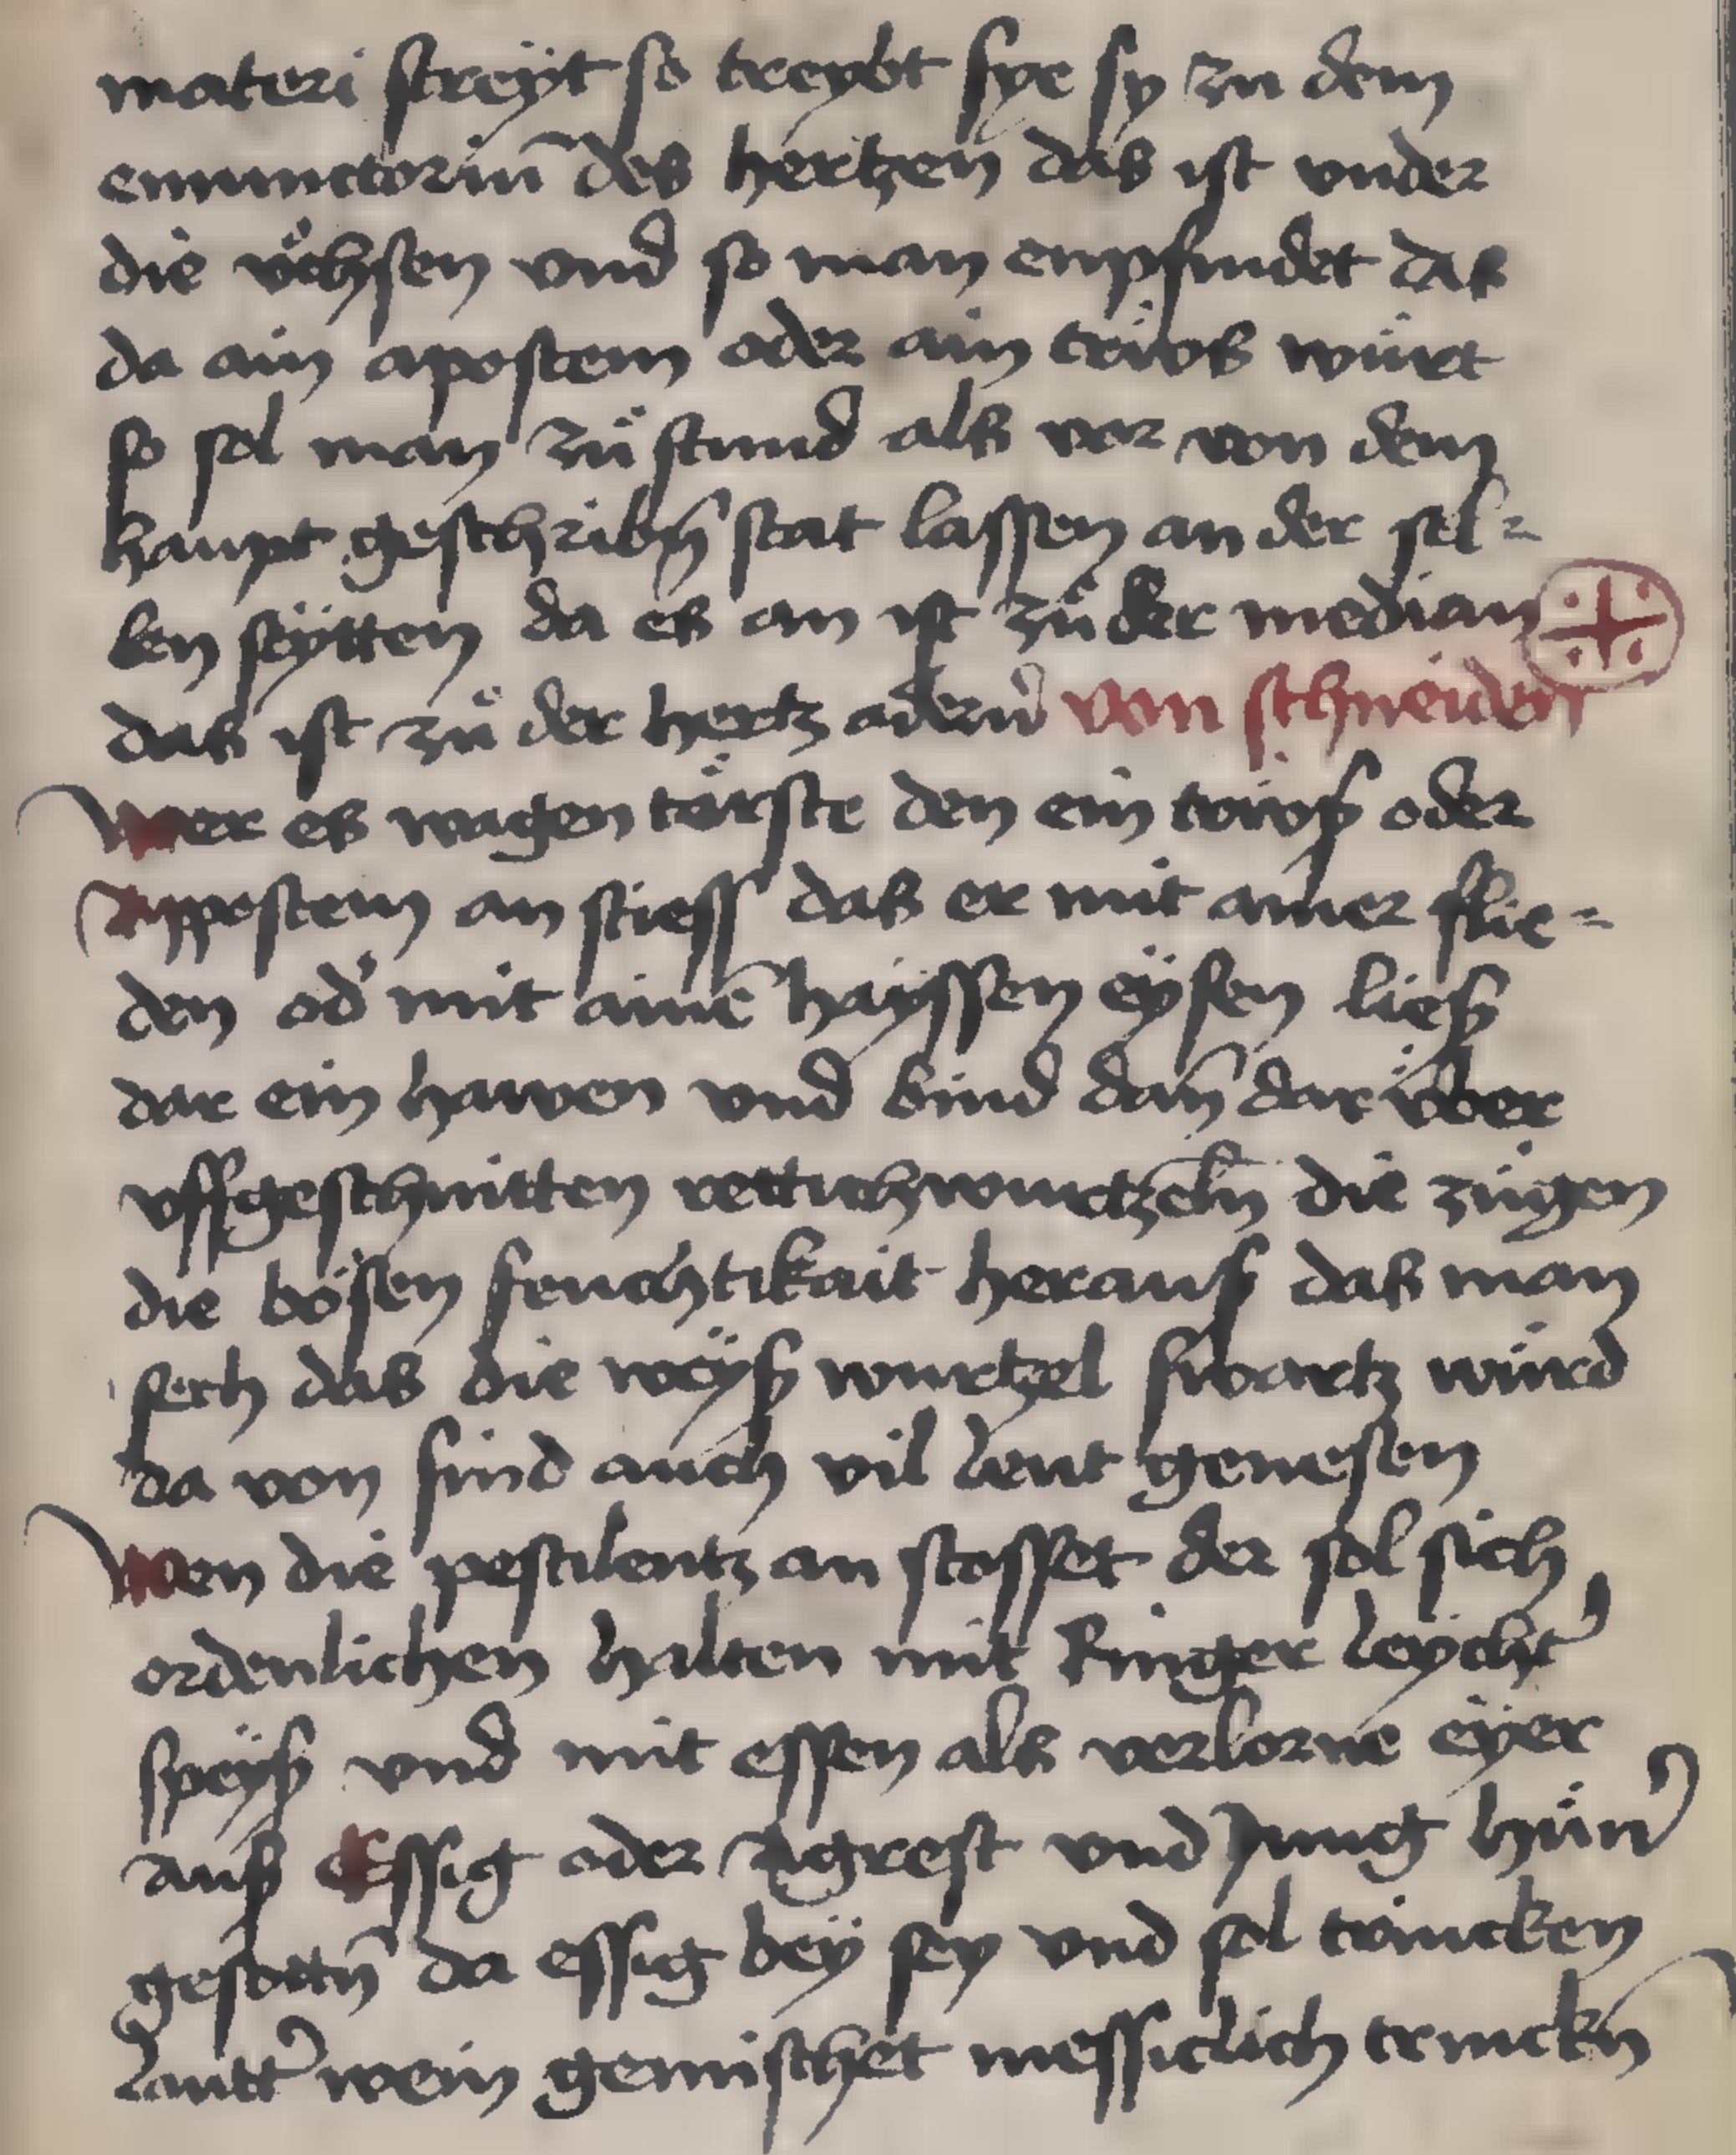 materi streÿt so treybt sye sy zu dem
emunctoriū des hertzen das ist vnder
die v̈chsen vnd so man enpfindet das
da ain apostem oder ain trüos würt
so sol man zů stund als vor von dem
haupt geschribn̄ stat lassen an der sel=
ben seÿtten da es an ist zů der median
das ist zů der hertz adern von schneiden
Wer es wagen törste den ein trüoß oder
Appostem an stiess das er mit ainer flie=
den od' mit ainē haÿssen eÿsen ließ
dar ein hawen vnd bind dan̄ dar über
vffgeschnitten rettichwurtzeln̄ die zügen
die bösen feuchtikait herauß das man
sech das die weÿß wurtzel swartz würd
da von sind auch vil leut genesen
Wen die pestilentz an stosset der sol sich
ordenlichen halten mit Ringer leÿcht'
speÿß vnd mit essen als verlorne eÿer
auß Essig oder Agrest vnd Jung hün'
gesottn̄ da essig beÿ sey vnd sol trincken
lautt' wein gemischet messiclich trinckn̄